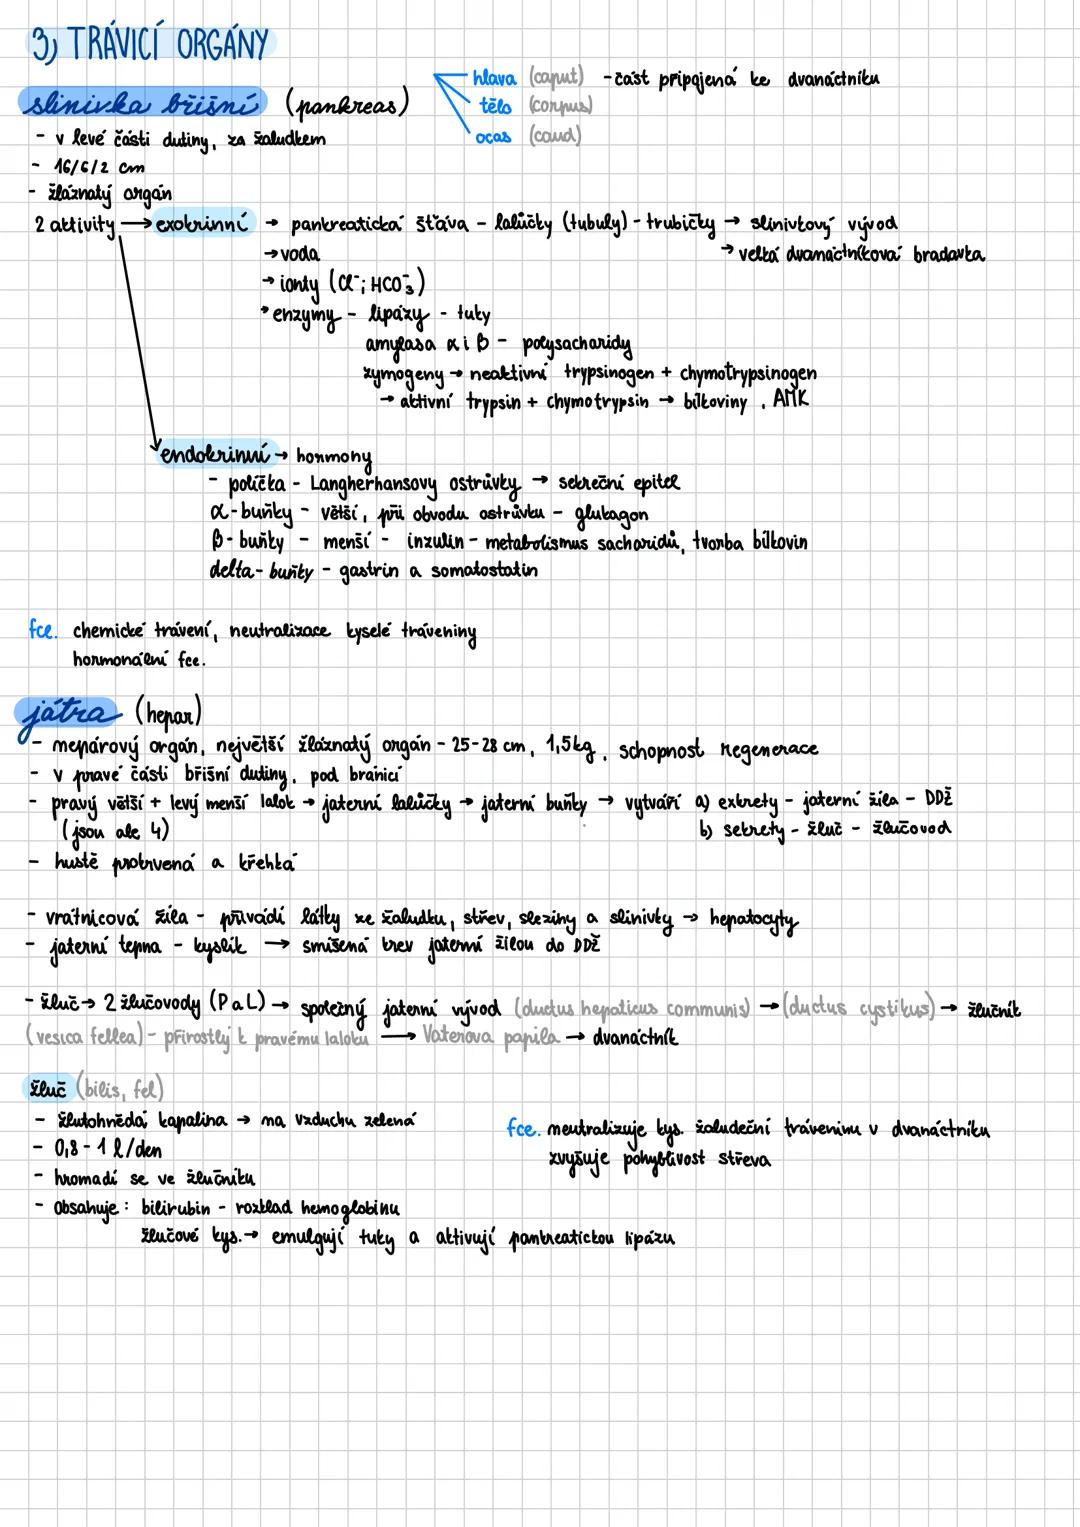 3) TRÁVICÍ ORGÁNY
slinivka břišní (pankreas)
hlava (caput) - část připojená ke dvanáctníku
tělo (corpus)
ocas (caud)
- v levé části dutiny, za žaludkem
- 16/6/2 cm
- žláznatý orgán
2 aktivity → exokrinní → pankreatická šťáva - lalůčky (tubuly) - trubičky → slinivkový vývod
→ velká dvanáctníková bradavka
→ voda
→ ionty (Cl⁻; HCO₃⁻)
→ enzymy - lipázy - tuky
amylasa α i β - polysacharidy
zymogeny → neaktivní trypsinogen + chymotrypsinogen
→ aktivní trypsin + chymotrypsin → bílkoviny, AMK
endokrinní → hormony
- políčka - Langherhansovy ostrůvky → sekreční epitel
α-buňky - větší, při obvodu ostrůvku - glukagon
β-buňky - menší - inzulin - metabolismus sacharidů, tvorba bílkovin
delta-buňky - gastrin a somatostatin
fce. chemické trávení, neutralizace kyselé tráveniny
hormonální fce.
játra (hepar)
- nepárový orgán, největší žláznatý orgán - 25-28 cm, 1,5kg, schopnost regenerace
- v pravé části břišní dutiny, pod bránicí
- pravý větší + levý menší lalok → jaterní lalůčky → jaterní buňky → vytváří a) exkrety - jaterní žíla - DDŽ
(jsou ale 4) b) sekrety - žluč - žlučovod
- hustě prokrvená a křehká
- vrátnicová žíla - přivádí látky ze žaludku, střev, sleziny a slinivky → hepatocyty
- jaterní tepna - kyslík → smíšená krev jaterní žílou do DDŽ
- žluč → 2 žlučovody (P a L) → společný jaterní vývod (ductus hepaticus communis) → (ductus cystikus) → žlučník
(vesica fellea) - přirostlý k pravému laloku → Vaterova papila → dvanáctník
žluč (bilis, fel)
- žlutohnědá kapalina → na vzduchu zelená
- 0,8 - 1 l/den
- hromadí se ve žlučníku
- obsahuje: bilirubin - rozklad hemoglobinu
žlučové kys. → emulgují tuky a aktivují pankreatickou lipázu
fce. neutralizuje kys. žaludeční tráveninu v dvanáctníku
zvyšuje pohyblivost střeva